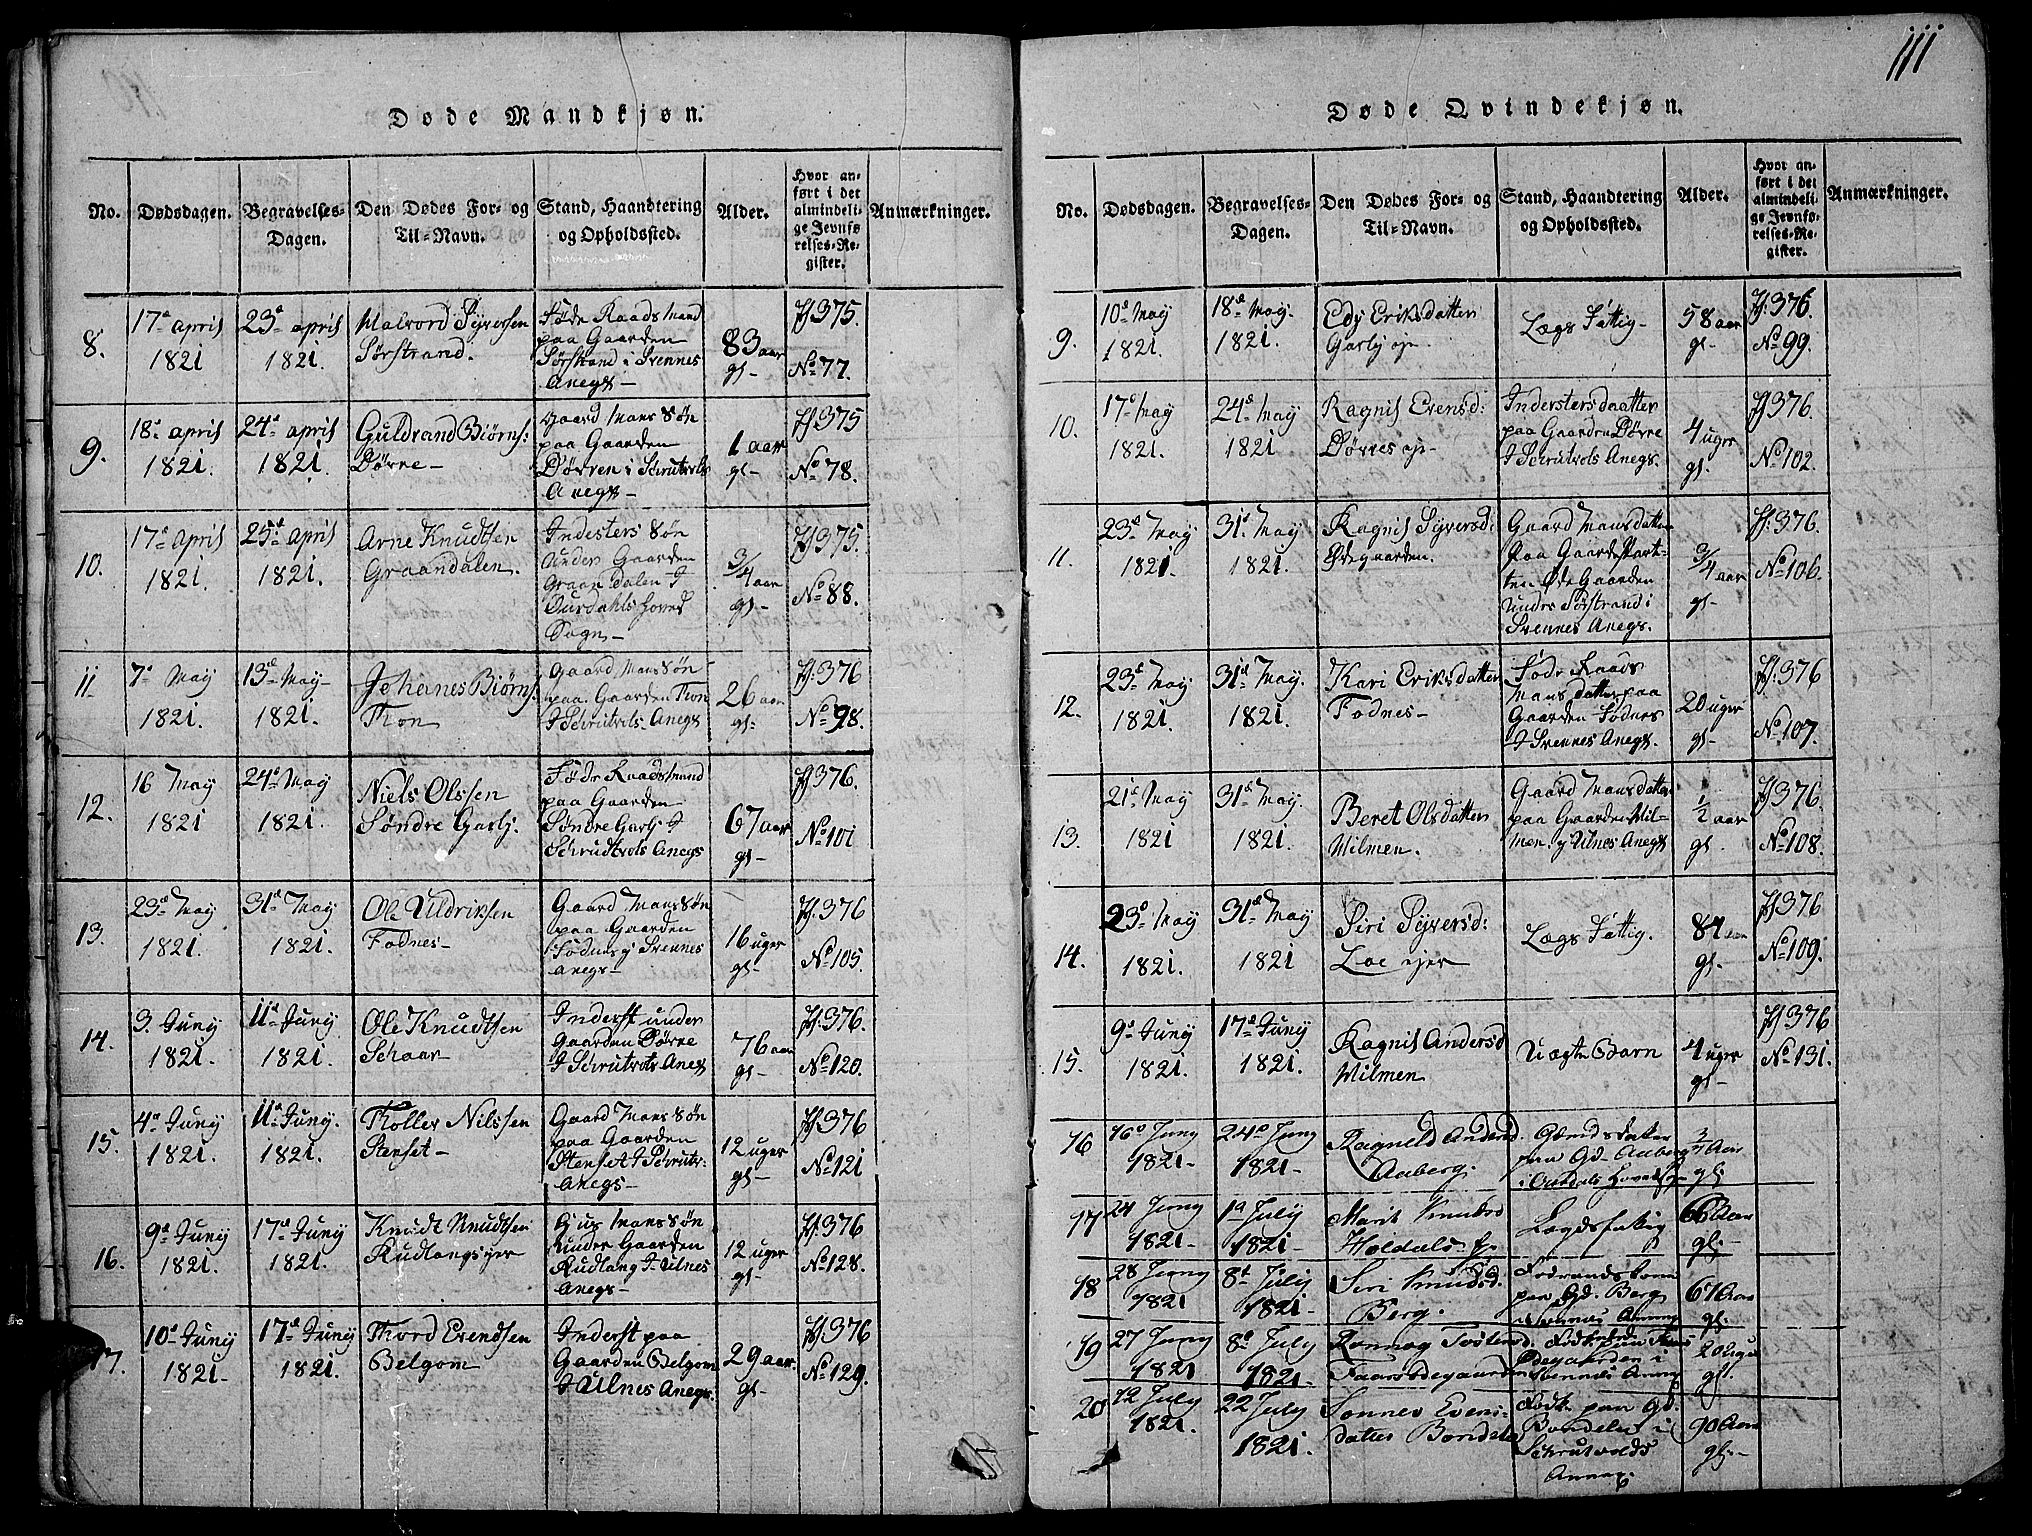 111
Døde Mandkjøn.
No.
Dødsdagen.
Begravelses-
Dagen.
Den Dødes For- og
Til-Navn.
Stand, Haandtering
og Opholdssted.
Alder.
Hvor an-
ført i det
almindeli-
ge Jevnfø
relses-Re-
gister.
Anmærkninger.
8.
17de april
1821
23de april
1821.
Halvord Syversen
Sørstrand.
Føde Raads Mand
paa Gaarden
Sørstrand i Svennes
Anegs
83 aar
gl
ff 375.
No 77.
9.
18de april
1821.
24de april
1821.
Guldrand Biørns:
Dørre
Gaard Mans Søn
paa Gaarden
Dørren i Schrutvols
Anegs
1 aar
gl
ff 375
No 78.
10.
17de april
1821.
25de april
1821.
Arne Knudtsen
Graandalen.
Indesters Søn
under Gaarden
Graan Dalen I
Ourdahls Hoved
Sogn
3/4 aar
gl
ff 375.
No 88.
11
7de May
1821.
13de May
1821.
Johanes Biørns:
Thon
Gaard Mans Søn
paa Gaarden Thon
I Schrutvols Anegs
26 aar
gl:
ff: 376
No 98.
12.
16 May
1821
24de May
1821.
Niels Olssen
Søndre Garlj.
Føde Raads Mand
paa Gaarden
Søndre Garlj I
Schrudtvols Anegs
67 aar
gl
ff 376.
No 101
13.
23de May
1821.
31de May
1821.
Ole Uldriksen
Fodnes
Gaard Mans Søn
paa Gaarden
Fodnes y Svennes
Anegs
16 uger
gl
ff: 376
No 105.
14.
3. Juny
1821.
11de Juny
1821.
Ole Knudtsen
Schaar
Inderst under
Gaarden Dørre
I Schrutvols Anegs
76 aar
gl
ff: 376.
No 120.
15.
4de Juny
1821.
11de Juny.
1821.
Tholler Nilssen
Stenset
Gaard Mans Søn
paa Gaarden
Stenset I Schrutv:
Anegs
12 uger
gl
ff 376
No 121
16.
9de Juny
1821.
17de Juny
1821.
Knudt Knudtsen
Rudlangsejer
Hus Mans Søn
under Gaarden
Rudlang I Ulnes
Anegs
12 uger
gl
ff. 376
No 128.
17.
10de Juny
1821.
17de Juny
1821.
Thord Evendsen
Belgom
Inderst paa
Gaarden Belgom
I Ulnes Anegs.
29 aar.
gl
ff 376
No 129.
Døde Qvindekjøn.
No.
Dødsdagen.
Begravelses-
Dagen.
Den Dødes For- og
Til-Navn.
Stand, Haandtering
og Opholdssted.
Alder.
Hvor an-
ført i det
almindeli
ge Jevnfø-
relses-Re-
gister.
Anmærkninger.
9.
10de May
1821.
18de May.
1821.
Edj Eriksdatter
Garlj ejr
Lægs Fattig
58 aar
gl
ff: 376.
No 99.
10.
17de May
1821.
24de May
1821
Ragnil Evensd:
Dørres ejr
Indersters daatter
paa Gaarden Dørre
I Schrutvols Anegs.
4 uger
gl.
ff 376.
No 102.
11.
23de May
1821.
31de May
1821.
Ragnil Syversd:
Ødegaarden.
Gaard Mans datter
paa Gaarde Part-
ten Øde Gaarden
under Sørstrand i
Svennes Anegs.
3/4 aar
gl
ff: 376.
No 106.
12.
23de May
1821.
31de May.
1821.
Kari Eriksdatter
Fodnes
Føde Raads
Mans datter paa
Gaarden Fodnes
I Svennes Anegs.
20 uger
gl.
ff: 376
No 107.
13.
21de May
1821
31de May.
1821.
Beret Olsdatter
Wilmen.
Gaard Mans datter
paa Gaarden Wil-
men y Ulnes Anegs
1/2 aar
gl.
ff 376.
No 108.
14.
23de May
1821.
31de May
1821
Siri Syversd:
Loe ejer
Lægs Fattig.
84 aar
gl.
ff 376
No 109.
15.
9de Juny
1821.
17de Juny
1821.
Ragnil Andersd
Wilmen
Uægte Barn
4 uger
gl
ff 376
No 131.
16
16de Juny
1821
24de Juny
1821
Ragneld Andersd.
Aaberg.
Gaards datter
paa Gd Aaberg
i Aurdals Hoveds.
3/4 Aar
gl
17
24 Juny
1821
1te July
1821
Marit Knudsd
Holdals
Lægdsfattig
66 Aar
gl:
18
28 Juny
1821
8de July
1821.
Siri Knudsd.
Berg.
Foderaadskone
paa Gd. Berg
i Svennes Annex
67 Aar
gl.
19
27 Juny
1821
8de July
1821
Ronnog Tostensd
Faarødegaarden
Ødegaarden i
Svennes Annex
20 Uger
gl.
20
12 July
1821.
22 July
1821.
Sønnev Evens-
datter Bondelie
Født paa Gd.
Bondelie i
Schrutvolds
Annex.
90 Aar
gl.